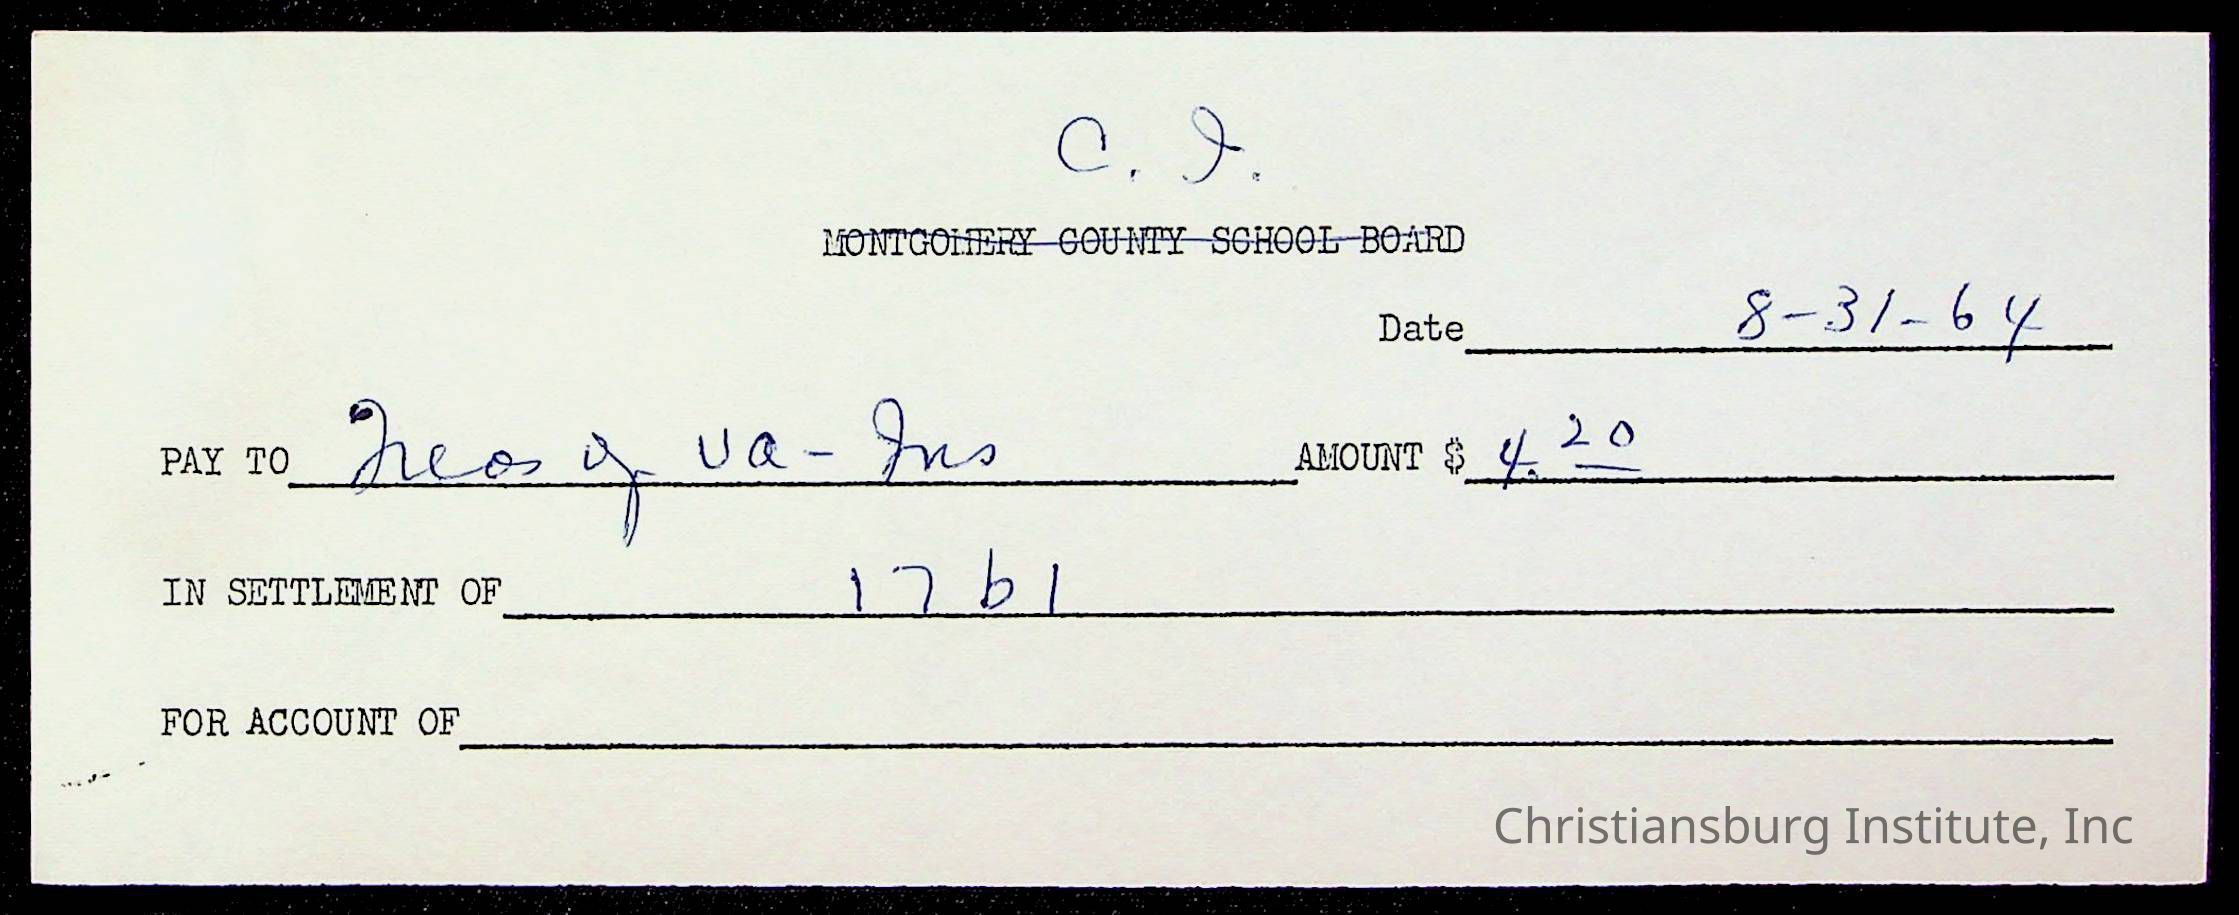 C. I.
MONTGOMERY COUNTY SCHOOL BOARD
Date 8-31-64
PAY TO Treas of Va - Ins AMOUNT $ 4.20
IN SETTLEMENT OF 1761
FOR ACCOUNT OF
Christiansburg Institute, Inc